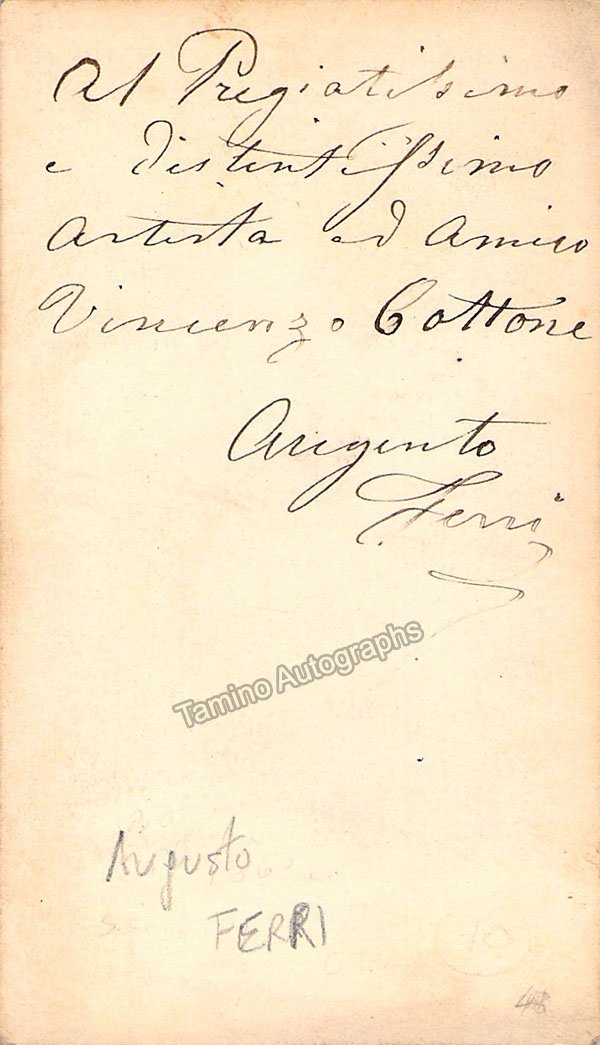 Al Pregiatissimo
e distintissimo
Artista ed Amico
Vincenzo Cottone
Ferri
Tamino Autographs
Augusto
FERRI